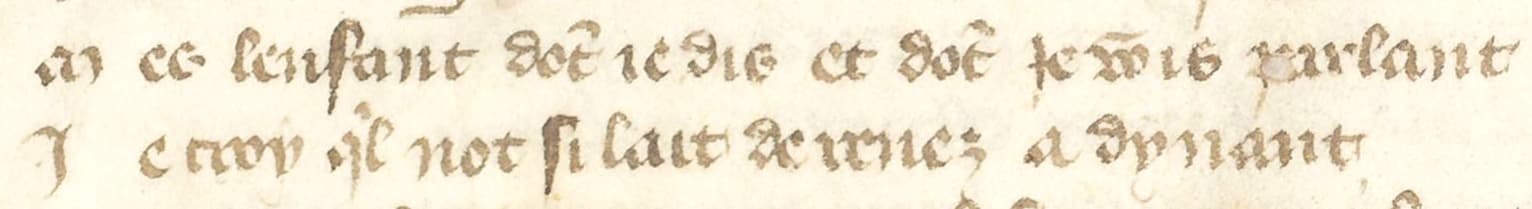 M es lenfant dōt ie dis et dōt Je vois parlant
J e croy q̇l not si lait de renez a dynant